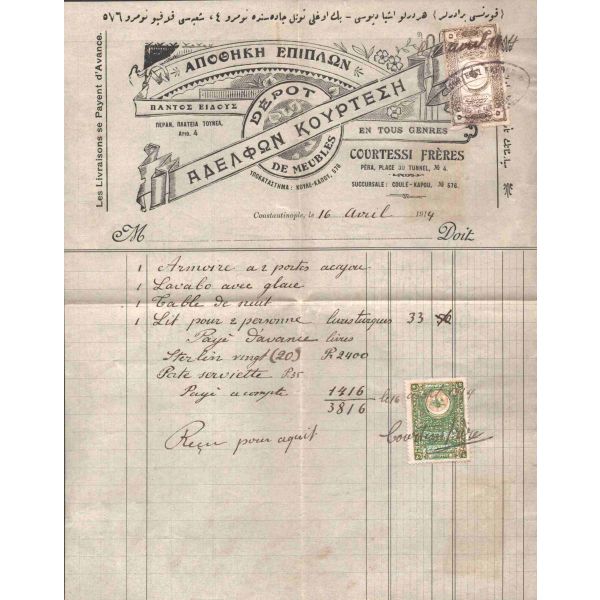 ( قورتسى برادرلر ) هر درلو اشيا ديپوسى – بك اوغلى تونل جاده سنده نومرو ٤، شعبه سى قوله قپو نومرو ٥٧٦
Les Livraisons se Payent d'Avance.
ΑΠΟΘΗΚΗ ΕΠΙΠΛΩΝ
ΠΑΝΤΟΣ ΕΙΔΟΥΣ
ΠΕΡΑΝ, ΠΛΑΤΕΙΑ ΤΟΥΝΕΛ,
ΑΡΙΘ. 4
DÉPOT
DE MEUBLES
ΑΔΕΛΦΩΝ ΚΟΥΡΤΕΣΗ
ΥΠΟΚΑΤΑΣΤΗΜΑ : ΚΟΥΛΕ-ΚΑΠΟΥ, 576
EN TOUS GENRES
COURTESSI FRÈRES
PÉRA, PLACE DU TUNNEL, № 4.
SUCCURSALE : COULÉ-KAPOU, № 576.
avril 1914
Constantinople, le 16 Avril 1914
M Doit
1 Armoire a 2 portes acajou
1 Lavabo avec glace
1 Table de nuit
1 Lit pour 2 personne livres turques 33
Payé d'avance livres
Sterlin vingt (20) P. 2400
Porte serviette P 35
Payé acompte 1416 le 16 avril 1914
3816
Reçu pour aquit